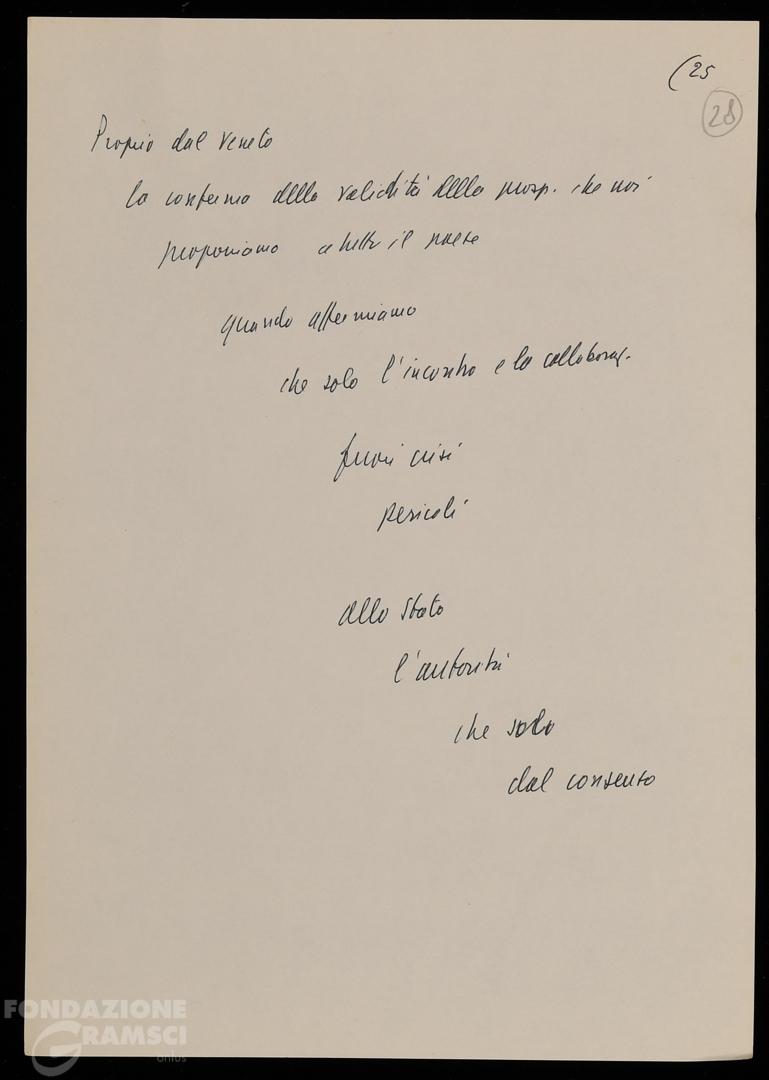 (25
28
Proprio dal Veneto
la conferma della validità della prosp. che noi
proponiamo a tutto il paese
quando affermiamo
che solo l'incontro e la collaboraz.
fuori crisi
pericoli
allo Stato
l'autorità
che solo
dal consenso
FONDAZIONE
GRAMSCI
onlus